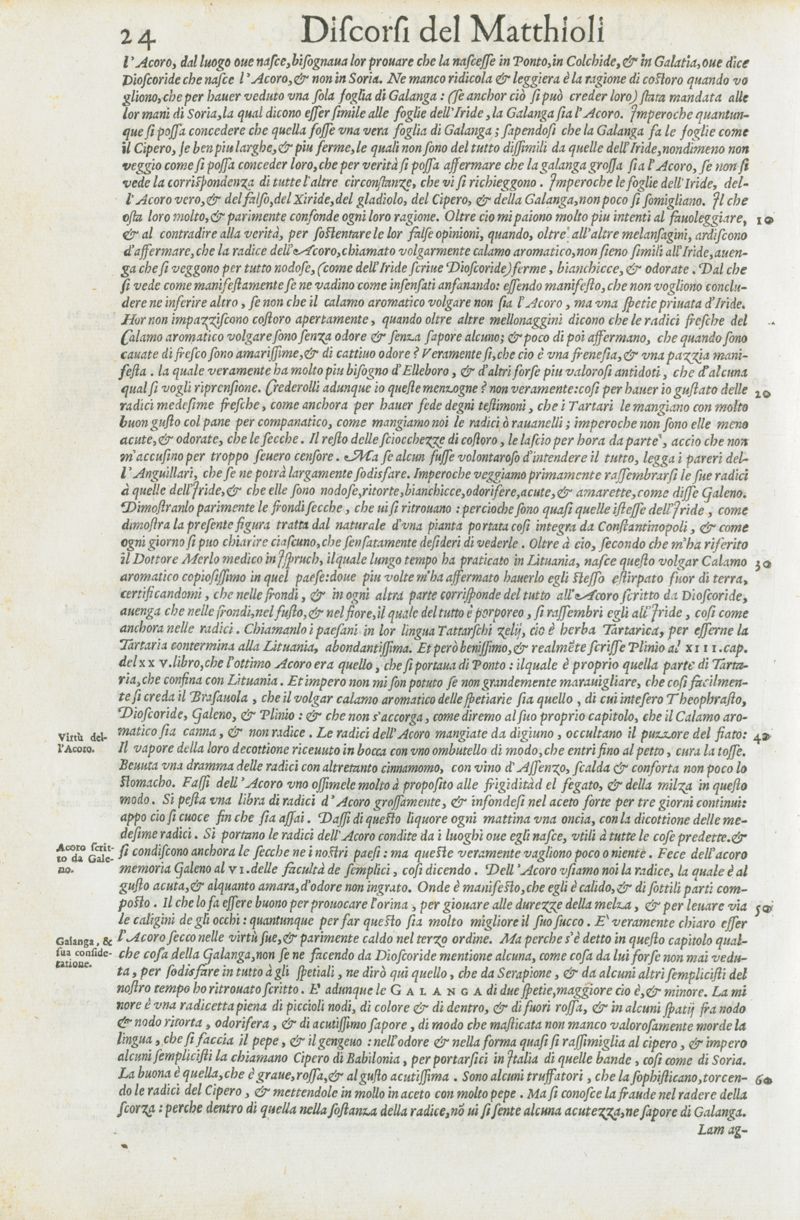 24 Diſcorſi del Matthioli
l'Acoro, dal luogo oue naſce, biſognaua lor prouare che la naſceſſe in Ponto, in Colchide, & in Galatia, oue dice
Dioſcoride che naſce l'Acoro, & non in Soria. Ne manco ridicola & leggiera è la ragione di coſtoro quando vo
gliono, che per hauer veduto vna ſola foglia di Galanga: (ſe anchor ciò ſi può creder loro) ſtata mandata alle
lor mani di Soria, la qual dicono eſſer ſimile alle foglie dell'Iride, la Galanga ſia l'Acoro. Imperoche quantun-
que ſi poſſa concedere che quella foſſe vna vera foglia di Galanga; ſapendoſi che la Galanga fa le foglie come
il Cipero, ſe ben piu larghe, & piu ferme, le quali non ſono del tutto diſſimili da quelle dell'Iride, nondimeno non
veggio come ſi poſſa conceder loro, che per verità ſi poſſa affermare che la galanga groſſa ſia l'Acoro, ſe non ſi
vede la corriſpondenza di tutte l'altre circonſtanze, che vi ſi richieggono. Imperoche le foglie dell'Iride, del-
l'Acoro vero, & del falſo, del Xiride, del gladiolo, del Cipero, & della Galanga, non poco ſi ſomigliano. Il che
oſta loro molto, & parimente confonde ogni loro ragione. Oltre cio mi paiono molto piu intenti al fauoleggiare, 10
& al contradire alla verità, per ſoſtentare le lor falſe opinioni, quando, oltre all'altre melanſagini, ardiſcono
d'affermare, che la radice dell'Acoro, chiamato volgarmente calamo aromatico, non ſieno ſimili all'Iride, auen-
ga che ſi veggono per tutto nodoſe, (come dell'Iride ſcriue Dioſcoride) ferme, bianchicce, & odorate. Dal che
ſi vede come manifeſtamente ſe ne vadino come inſenſati anfanando: eſſendo manifeſto, che non vogliono conclu-
dere ne inferire altro, ſe non che il calamo aromatico volgare non ſia l'Acoro, ma vna ſpetie priuata d'Iride.
Hor non impazziſcono coſtoro apertamente, quando oltre altre mellonaggini dicono che le radici freſche del
Calamo aromatico volgare ſono ſenza odore & ſenza ſapore alcuno; & poco di poi affermano, che quando ſono
cauate di freſco ſono amariſſime, & di cattiuo odore? Veramente ſi, che cio è vna freneſia, & vna pazzia mani-
feſta. la quale veramente ha molto piu biſogno d'Elleboro, & d'altri forſe piu valoroſi antidoti, che d'alcuna
qual ſi vogli riprenſione. Crederolli adunque io queſte menzogne? non veramente: coſi per hauer io guſtato delle 20
radici medeſime freſche, come anchora per hauer fede degni teſtimoni, che i Tartari le mangiano con molto
buon guſto col pane per companatico, come mangiamo noi le radici ò rauanelli; imperoche non ſono elle meno
acute, & odorate, che le ſecche. Il reſto delle ſciocchezze di coſtoro, le laſcio per hora da parte, accio che non
m'accuſino per troppo ſeuero cenſore. Ma ſe alcun fuſſe volontaroſo d'intendere il tutto, legga i pareri del-
l'Anguillari, che ſe ne potrà largamente ſodisfare. Imperoche veggiamo primamente raſſembrarſi le ſue radici
à quelle dell'Iride, & che elle ſono nodoſe, ritorte, bianchicce, odorifere, acute, & amarette, come diſſe Galeno.
Dimoſtranlo parimente le frondi ſecche, che ui ſi ritrouano: percioche ſono quaſi quelle iſteſſe dell'Iride, come
dimoſtra la preſente figura tratta dal naturale d'vna pianta portata coſi integra da Conſtantinopoli, & come
ogni giorno ſi puo chiarire ciaſcuno, che ſenſatamente deſideri di vederle. Oltre à cio, ſecondo che m'ha riferito
il Dottore Merlo medico in Iſpruch, il quale lungo tempo ha praticato in Lituania, naſce queſto volgar Calamo 30
aromatico copioſiſſimo in quel paeſe: doue piu volte m'ha affermato hauerlo egli ſteſſo eſtirpato fuor di terra,
certificandomi, che nelle frondi, & in ogni altra parte corriſponde del tutto all'Acoro ſcritto da Dioſcoride,
auenga che nelle frondi, nel fuſto, & nel fiore, il quale del tutto è porporeo, ſi raſſembri egli all'Iride, coſi come
anchora nelle radici. Chiamanlo i paeſani in lor lingua Tattarſchi zelij, cio è herba Tartarica, per eſſerne la
Tartaria contermina alla Lituania, abondantiſſima. Et però beniſſimo, & realmẽte ſcriſſe Plinio al XIII. cap.
del XXV. libro, che l'ottimo Acoro era quello, che ſi portaua di Ponto: il quale è proprio quella parte di Tarta-
ria, che confina con Lituania. Et impero non mi ſon potuto ſe non grandemente marauigliare, che coſi facilmen-
te ſi creda il Braſauola, che il volgar calamo aromatico delle ſpetiarie ſia quello, di cui inteſero Theophraſto,
Dioſcoride, Galeno, & Plinio: & che non s'accorga, come diremo al ſuo proprio capitolo, che il Calamo aro-
Virtù del-
l'Acoro.
matico ſia canna, & non radice. Le radici dell'Acoro mangiate da digiuno, occultano il puzzore del fiato: 40
Il vapore della loro decottione riceuuto in bocca con vno ombutello di modo, che entri fino al petto, cura la toſſe.
Beuuta vna dramma delle radici con altretanto cinnamomo, con vino d'Aſſenzo, ſcalda & conforta non poco lo
ſtomacho. Faſſi dell'Acoro vno oſſimele molto à propoſito alle frigidità del fegato, & della milza in queſto
modo. Si peſta vna libra di radici d'Acoro groſſamente, & infondeſi nel aceto forte per tre giorni continui:
appo cio ſi cuoce fin che ſia aſſai. Daſſi di queſto liquore ogni mattina vna oncia, con la dicottione delle me-
deſime radici. Si portano le radici dell'Acoro condite da i luoghi oue egli naſce, vtili à tutte le coſe predette. &
Acoro ſcrit-
to da Gale-
no.
ſi condiſcono anchora le ſecche ne i noſtri paeſi: ma queſte veramente vagliono poco o niente. Fece dell'acoro
memoria Galeno al VI. delle facultà de ſemplici, coſi dicendo. Dell'Acoro vſiamo noi la radice, la quale è al
guſto acuta, & alquanto amara, d'odore non ingrato. Onde è manifeſto, che egli è calido, & di ſottili parti com-
poſto. Il che lo fa eſſere buono per prouocare l'orina, per giouare alle durezze della melza, & per leuare via 50
le caligini de gli occhi: quantunque per far queſto ſia molto migliore il ſuo ſucco. E' veramente chiaro eſſer
Galanga, &
ſua conſide-
ratione.
l'Acoro ſecco nelle virtù ſue, & parimente caldo nel terzo ordine. Ma perche s'è detto in queſto capitolo qual-
che coſa della Galanga, non ſe ne facendo da Dioſcoride mentione alcuna, come coſa da lui forſe non mai vedu-
ta, per ſodisfare in tutto à gli ſpetiali, ne dirò quì quello, che da Serapione, & da alcuni altri ſempliciſti del
noſtro tempo ho ritrouato ſcritto. E' adunque le GALANGA di due ſpetie, maggiore cio è, & minore. La mi
nore è vna radicetta piena di piccioli nodi, di colore & di dentro, & di fuori roſſa, & in alcuni ſpatij fra nodo
& nodo ritorta, odorifera, & di acutiſſimo ſapore, di modo che maſticata non manco valoroſamente morde la
lingua, che ſi faccia il pepe, & il gengeuo: nell'odore & nella forma quaſi ſi raſſimiglia al cipero, & impero
alcuni ſempliciſti la chiamano Cipero di Babilonia, per portarſici in Italia di quelle bande, coſi come di Soria.
La buona è quella, che è graue, roſſa, & al guſto acutiſſima. Sono alcuni truffatori, che la ſophiſticano, torcen- 60
do le radici del Cipero, & mettendole in mollo in aceto con molto pepe. Ma ſi conoſce la fraude nel radere della
ſcorza: perche dentro di quella nella ſoſtanza della radice, nõ ui ſi ſente alcuna acutezza, ne ſapore di Galanga.
Lam ag-